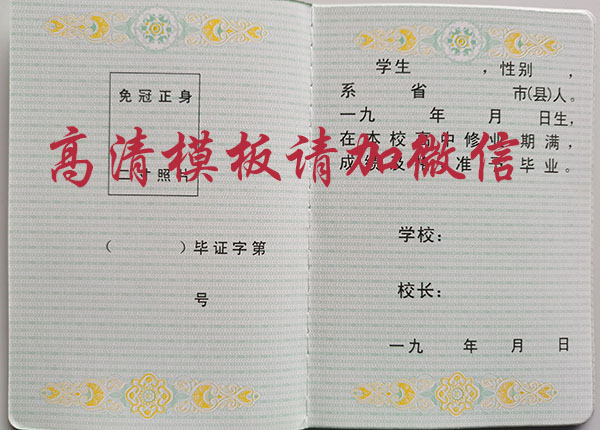 免冠正身
二寸照片
（ ）毕证字第
号
学生 ，性别 ，
系 省 市(县)人。
一九 年 月 日生，
在本校高中修业期满，
成绩及格准予毕业。
学校：
校长：
一九 年 月 日
高清模板请加微信